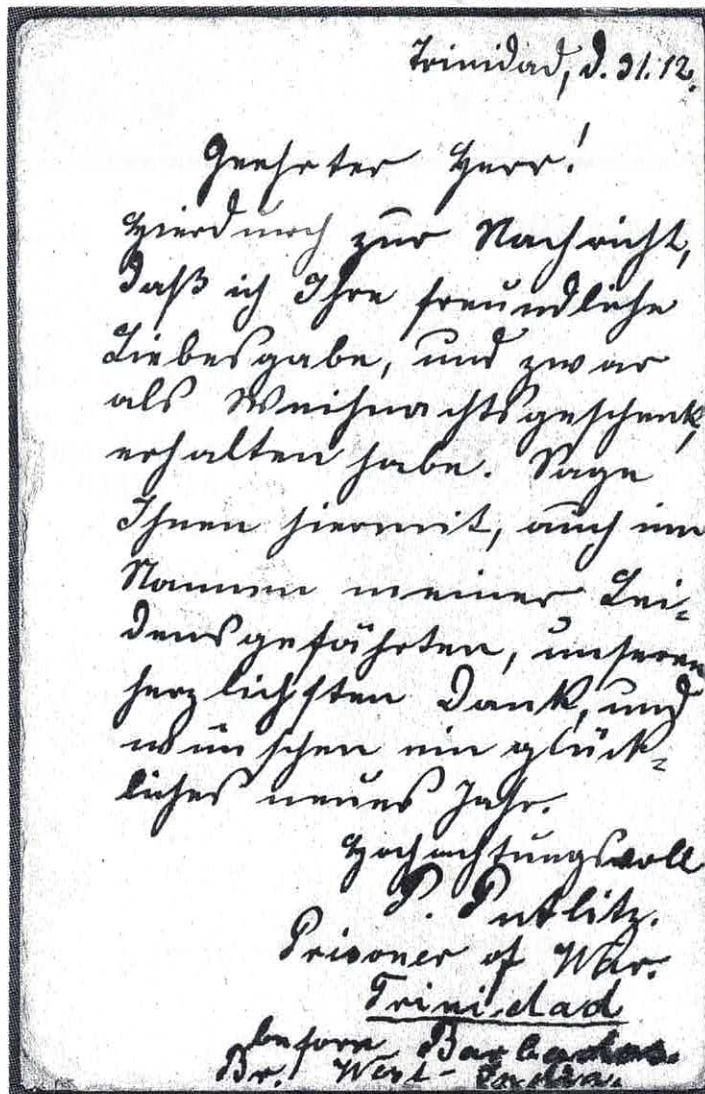 Trinidad, d. 31.12.
Geehrter Herr!
Hierdurch zur Nachricht,
daß ich Ihre freundliche
Liebesgabe, und zwar
als Weihnachtsgeschenk,
erhalten habe. Sage
Ihnen hiermit, auch im
Namen meiner Lei-
densgefährten, unseren
herzlichsten Dank, und
wünschen ein glück-
liches neues Jahr.
Hochachtungsvoll
P. Putlitz.
Prisoner of War.
Trinidad
before Barbados.
Br. West-India.